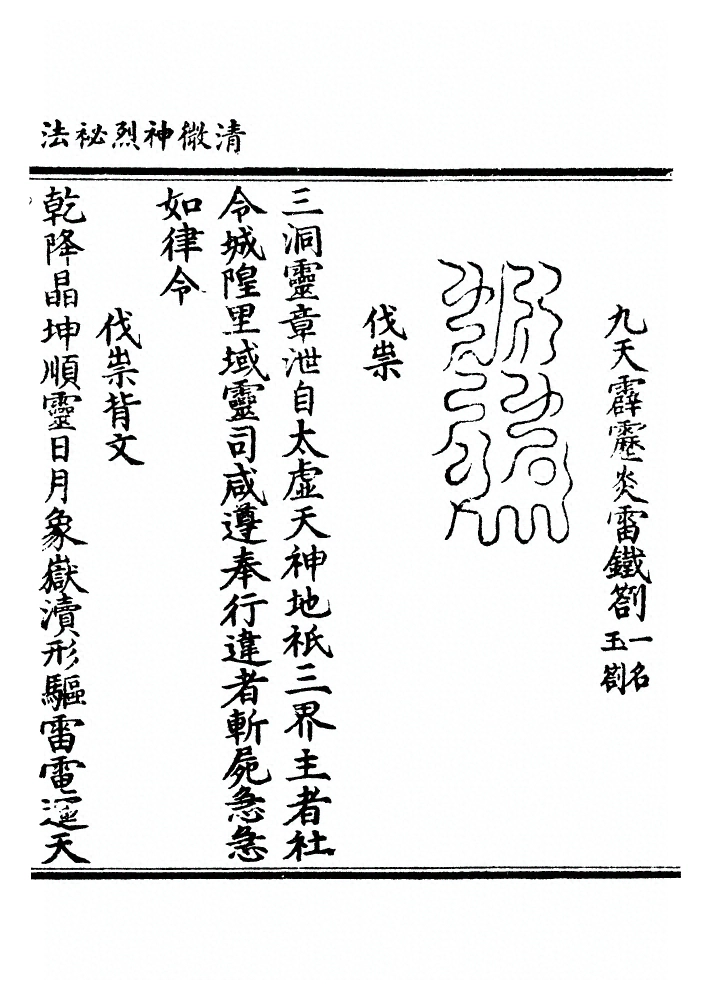 清微神烈祕法
九天霹靂炎雷鐵劄一名玉劄
伐祟
三洞靈章泄自太虛天神地祇三界主者社
令城隍里域靈司咸遵奉行違者斬屍急急
如律令
伐祟背文
乾降晶坤順靈日月象嶽瀆形驅雷電運天